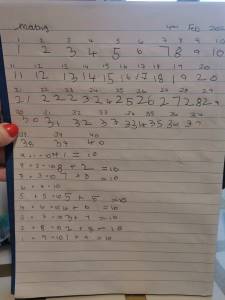 maths 4th Feb 202
1 2 3 4 5 6 7 8 9 10
1 2 3 4 5 6 7 8 9 10
11 12 13 14 15 16 17 18 19 20
11 12 13 14 15 16 17 18 19 20
21 22 23 24 25 26 27 28 29
21 22 23 24 25 26 27 28 29
30 31 32 33 34 35 36 37
38 39 40
38 39 40
= 10
8 + 2 = 10
7 + 3 = 10
6 + 4 = 10
5 + 5 = 10 5 + 5 = 10
4 + 6 = 10 4 + 6 = 10
3 + 7 = 10 3 + 7 = 10
2 + 8 = 10 2 + 8 = 10
1 + 9 = 10 1 + 9 = 10